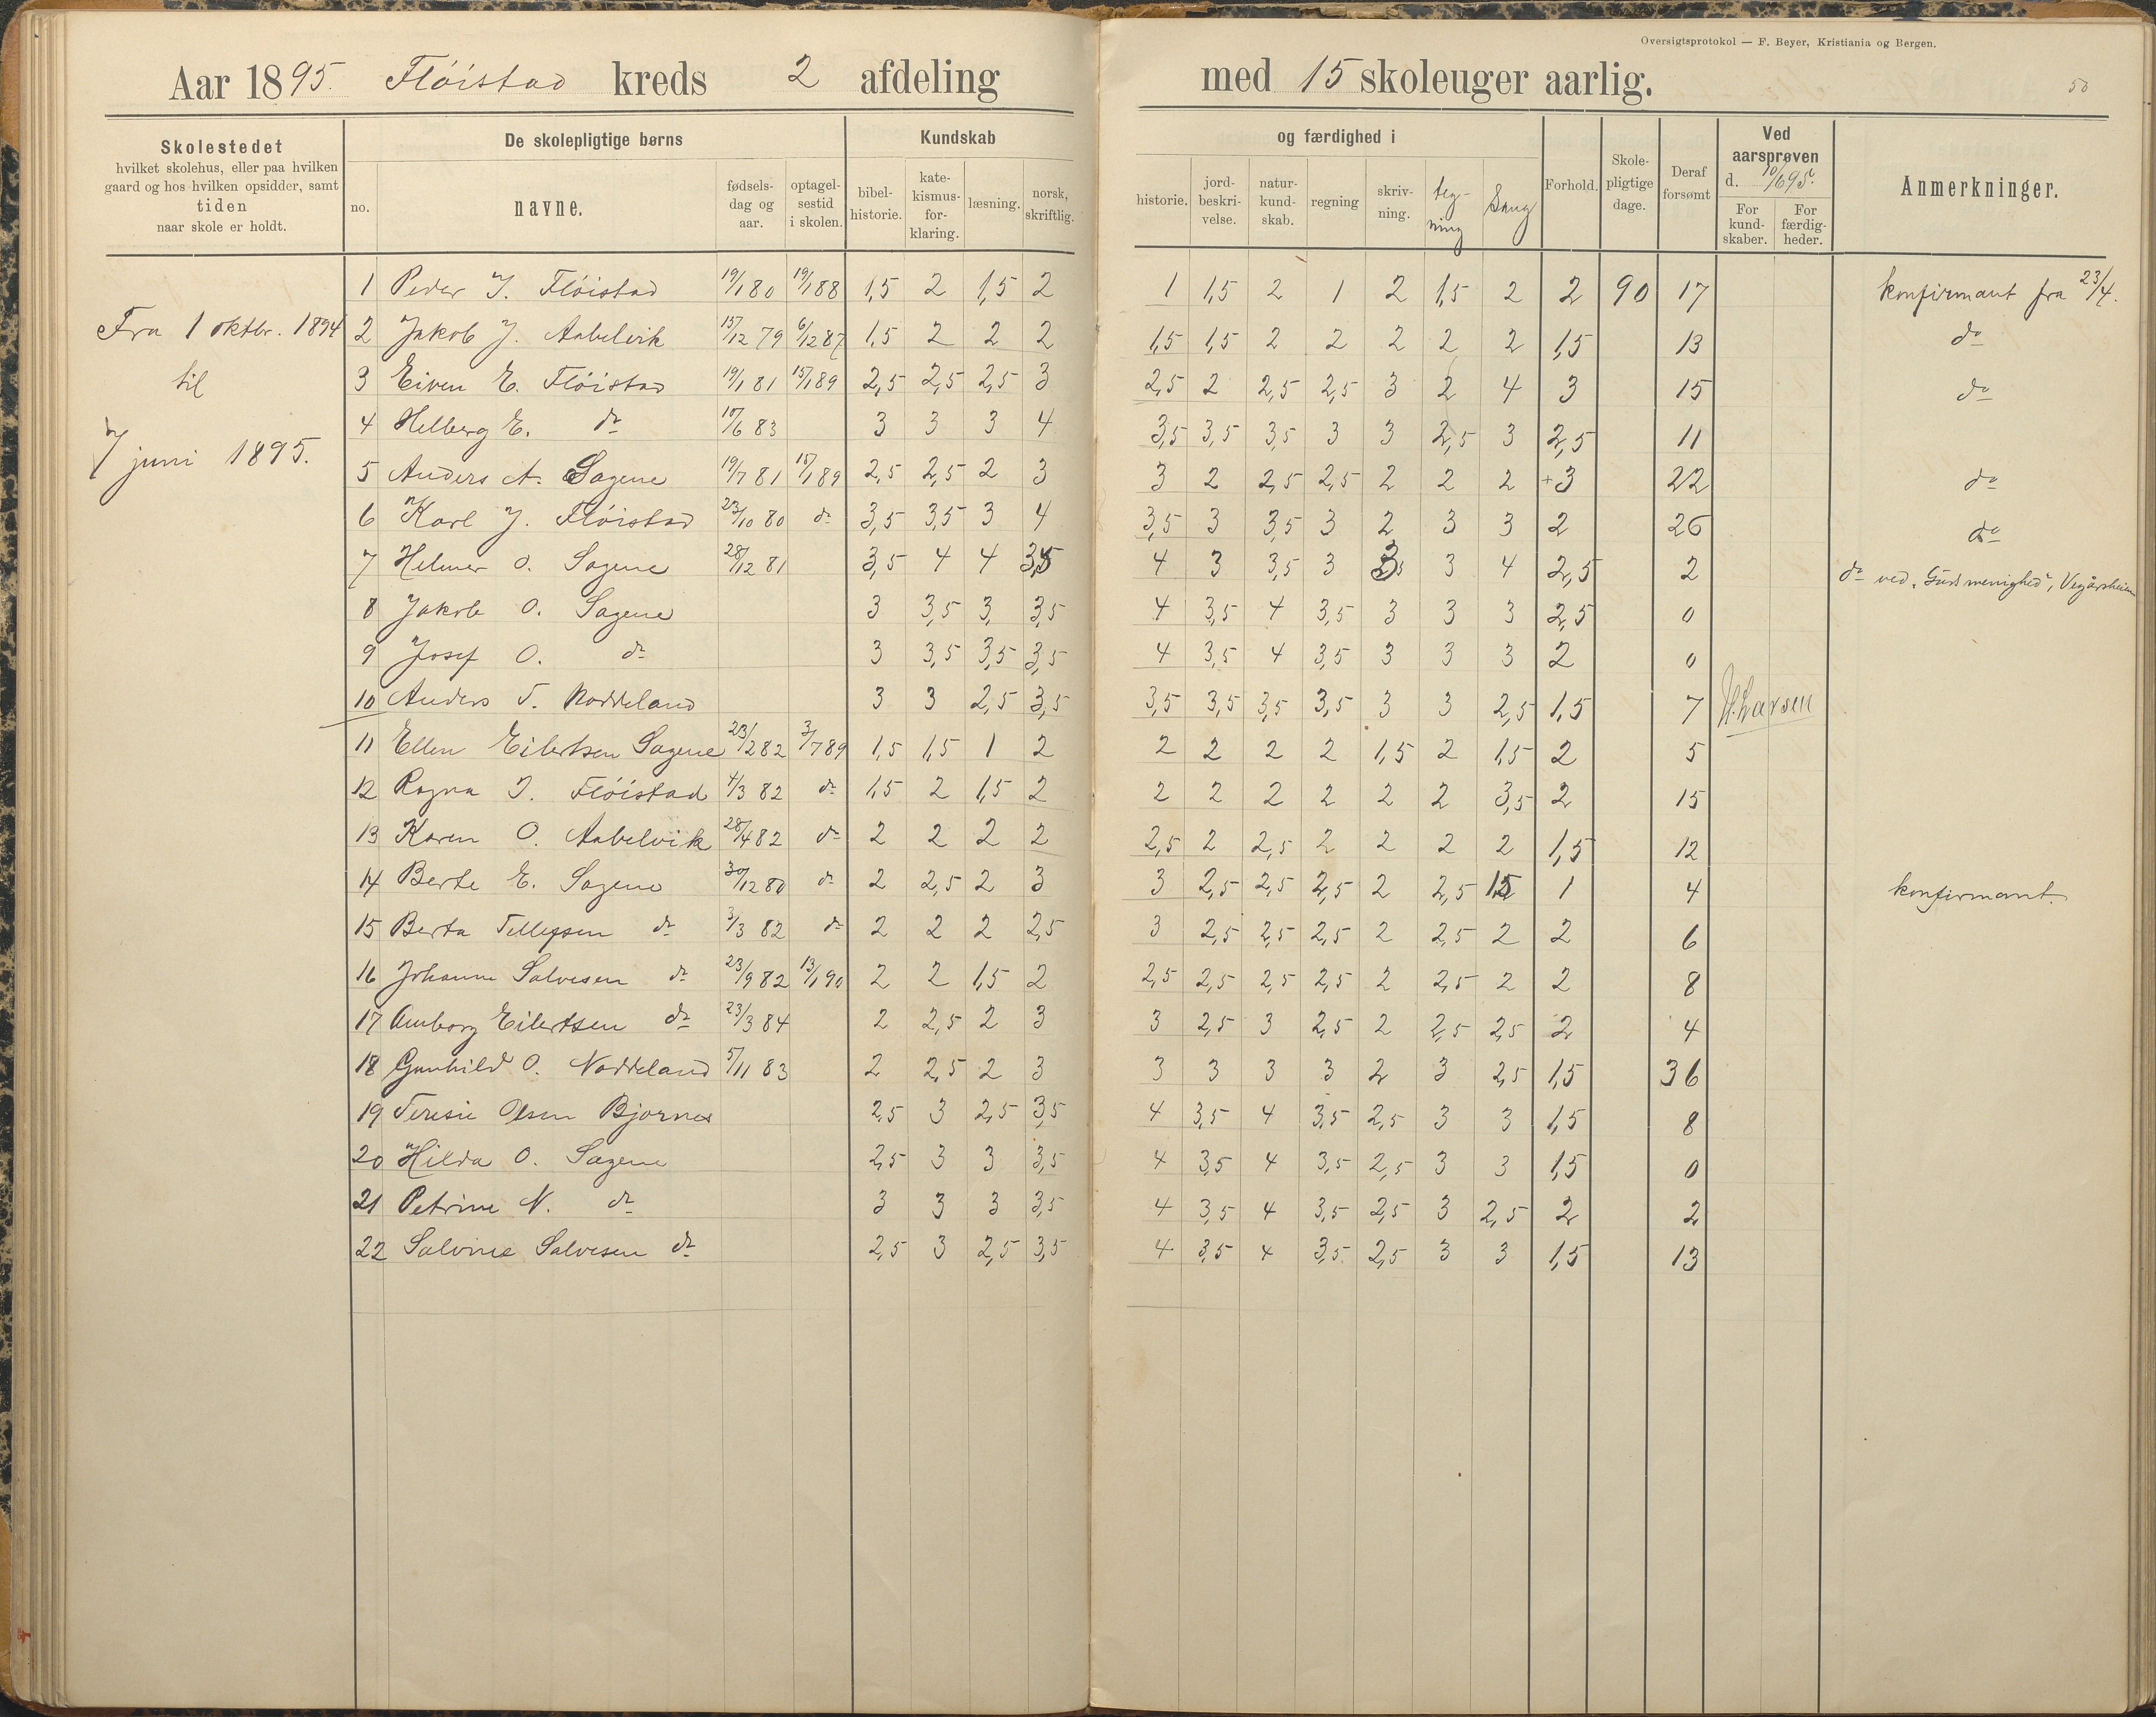 Oversigtsprotokol — F. Beyer, Kristiania og Bergen.
Aar 1895. Flöistad kreds 2 afdeling med 15 skoleuger aarlig.
50
Skolestedet
hvilket skolehus, eller paa hvilken
gaard og hos hvilken opsidder, samt
tiden
naar skole er holdt.
De skolepligtige børns
no. navne. fødsels-dag og aar. optagel-sestid i skolen.
Kundskab og færdighed i
bibel-historie. kate-kismus-for-klaring. læsning. norsk, skriftlig. historie. jord-beskri-velse. natur-kund-skab. regning skriv-ning. teg-ning Sang
Forhold. Skole-pligtige dage. Deraf forsømt
Ved aarsprøven d. 10/6 95.
For kund-skaber. For færdig-heder.
Anmerkninger.
Fra 1 oktbr. 1894
til
7 juni 1895.
1 Peder J. Flöistad 19/1 80 19/1 88 1,5 2 1,5 2 1 1,5 2 1 2 1,5 2 2 90 17 konfirmant fra 23/4.
2 Jakob J. Aabelvik 15/12 79 6/12 87 1,5 2 2 2 1,5 1,5 2 2 2 2 2 1,5 13 do
3 Eiven E. Flöistad 19/1 81 15/1 89 2,5 2,5 2,5 3 2,5 2 2,5 2,5 3 2 4 3 15 do
4 Helberg E. do 17/6 83 3 3 3 4 3,5 3,5 3,5 3 3 2,5 3 2,5 11
5 Anders A. Sagene 19/7 81 15/1 89 2,5 2,5 2 3 3 2 2,5 2,5 2 2 2 +3 22 do
6 Karl J. Flöistad 23/10 80 do 3,5 3,5 3 4 3,5 3 3,5 3 2 3 3 2 26 do
7 Helmer O. Sagene 28/12 81 3,5 4 4 3,5 4 3 3,5 3 3 3 4 2,5 2 do ved "Guds menighed", Vegårsheien
8 Jakob O. Sagene 3 3,5 3, 3,5 4 3,5 4 3,5 3 3 3 2,5 0
9 Josef O. do 3 3,5 3,5 3,5 4 3,5 4 3,5 3 3 3 2 0
10 Anders T. Noddeland 3 3 2,5 3,5 3,5 3,5 3,5 3,5 3 3 2,5 1,5 7 H. Larsen
11 Ellen Eilertsen Sagene 23/2 82 3/7 89 1,5 1,5 1 2 2 2 2 2 1,5 2 1,5 2 5
12 Ragna J. Flöistad 4/3 82 do 1,5 2 1,5 2 2 2 2 2 2 2 3,5 2 15
13 Karen O. Aabelvik 28/4 82 do 2 2 2 2 2,5 2 2,5 2 2 2 2 1,5 12
14 Berte E. Sagene 30/12 80 do 2 2,5 2 3 3 2,5 2,5 2,5 2 2,5 1,5 1 4 konfirmant.
15 Berta Tellefsen do 3/3 82 do 2 2 2 2,5 3 2,5 2,5 2,5 2 2,5 2 2 6
16 Johanne Salvesen do 23/9 82 13/1 90 2 2 1,5 2 2,5 2,5 2,5 2,5 2 2,5 2 2 8
17 Amborg Eilertsen do 23/3 84 2 2,5 2 3 3 2,5 3 2,5 2 2,5 2,5 2 4
18 Gunhild O. Noddeland 5/11 83 2 2,5 2 3 3 3 3 3 2 3 2,5 1,5 36
19 Teresie Olsen Bjornes 2,5 3 2,5 3,5 4 3,5 4 3,5 2,5 3 3 1,5 8
20 Hilda O. Sagene 2,5 3 3 3,5 4 3,5 4 3,5 2,5 3 3 1,5 0
21 Petrine N. do 3 3 3 3,5 4 3,5 4 3,5 2,5 3 2,5 2 2
22 Salvine Salvesen do 2,5 3 2,5 3,5 4 3,5 4 3,5 2,5 3 3 1,5 13